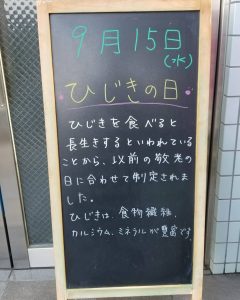 9月15日
(水)
ひじきの日
ひじきを食べると
長生きするといわれている
ことから、以前の敬老の
日に合わせて制定されま
した。
ひじきは、食物繊維、
カルシウム、ミネラルが豊富です。